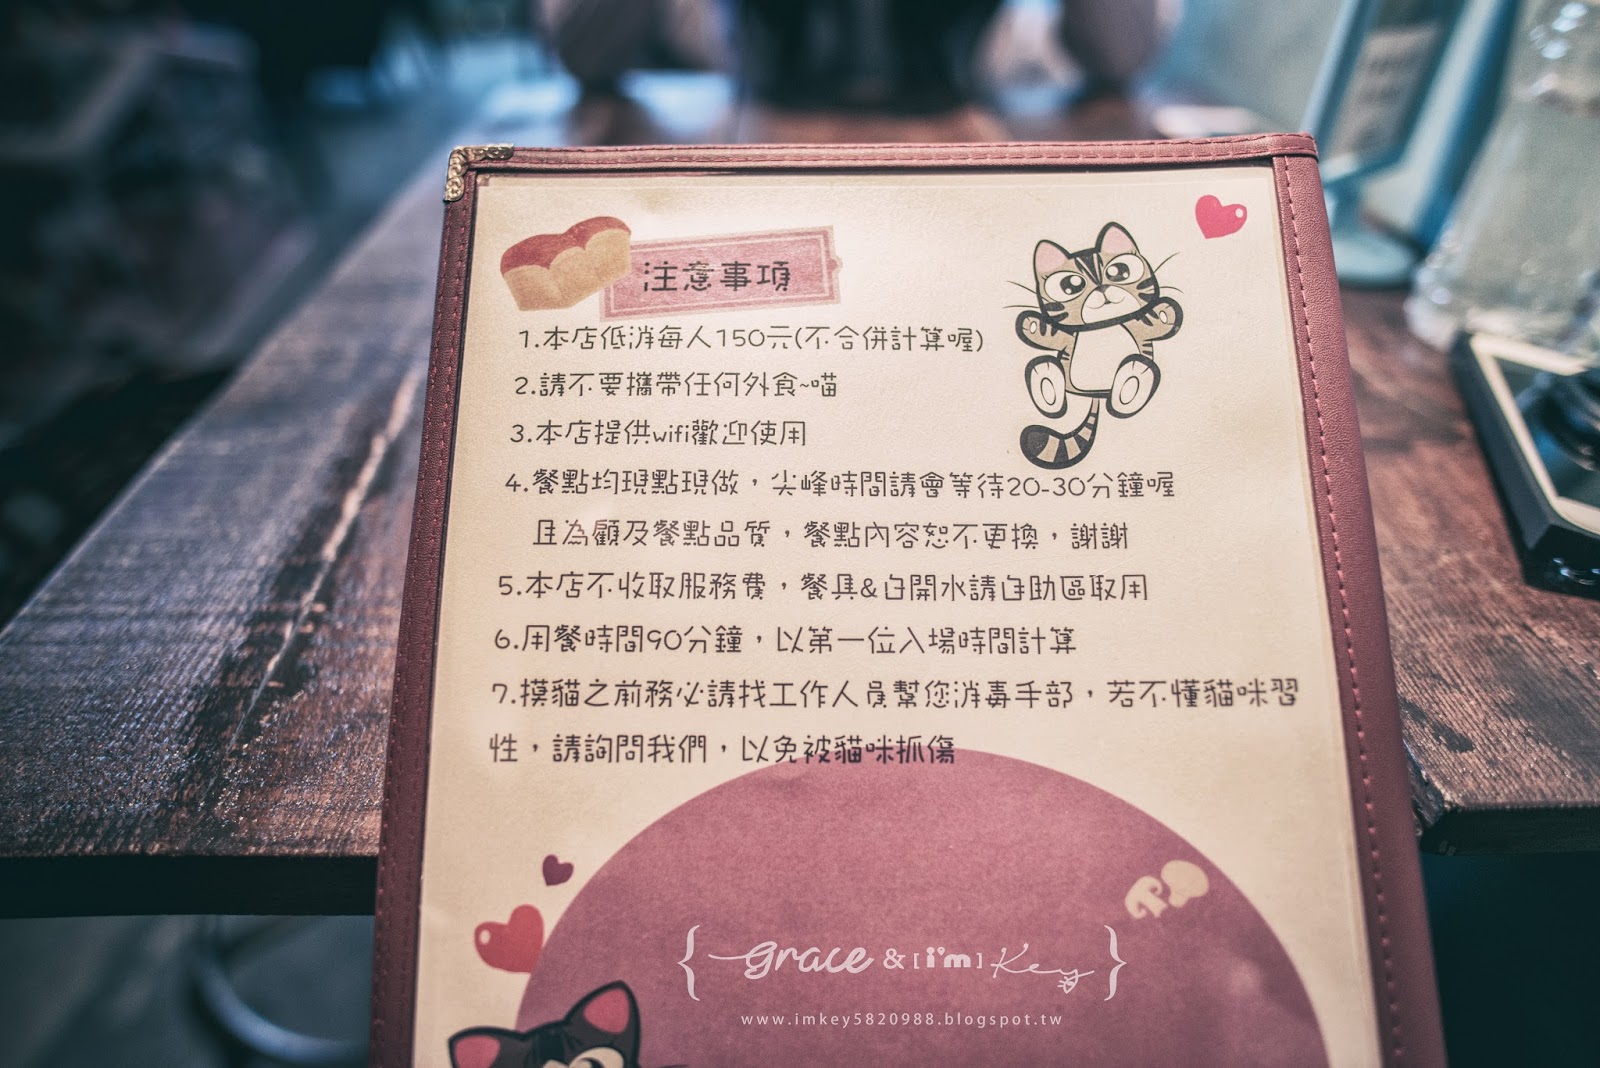 注意事項
1.本店低消每人150元(不合併計算喔)
2.請不要攜帶任何外食~喵
3.本店提供wifi歡迎使用
4.餐點均現點現做，尖峰時間請會等待20-30分鐘喔
且為顧及餐點品質，餐點內容恕不更換，謝謝
5.本店不收取服務費，餐具&白開水請自助區取用
6.用餐時間90分鐘，以第一位入場時間計算
7.摸貓之前務必請找工作人員幫您消毒手部，若不懂貓咪習
性，請詢問我們，以免被貓咪抓傷
{Grace & [i'm] Key}
www.imkey5820988.blogspot.tw